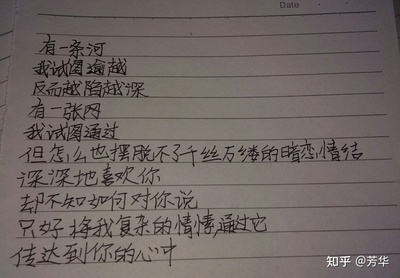 Date
有一条河
我试图逾越
反而越陷越深
有一张网
我试图通过
但怎么也摆脱不了千丝万缕的暗恋情结
深深地喜欢你
却不知如何对你说
只好将我复杂的情愫通过它
传达到你的心中
知乎 @芳华